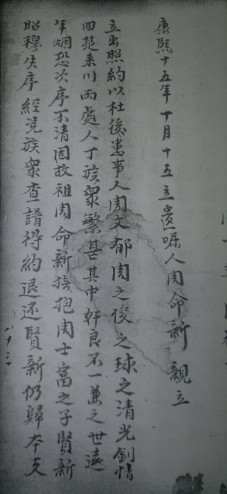 康熙十五年十月十五立遺囑人周命新 親立
立出照約以杜後患事人周文郁周之俊之球之清光創情
因楚来川两處人丁族衆繁甚其中奸良不一兼之世遠
年烟恐次序不清因故祖周命新撫抱周士富之子賢新
昭穆失序經凴族衆查譜得約退还賢新仍歸本支